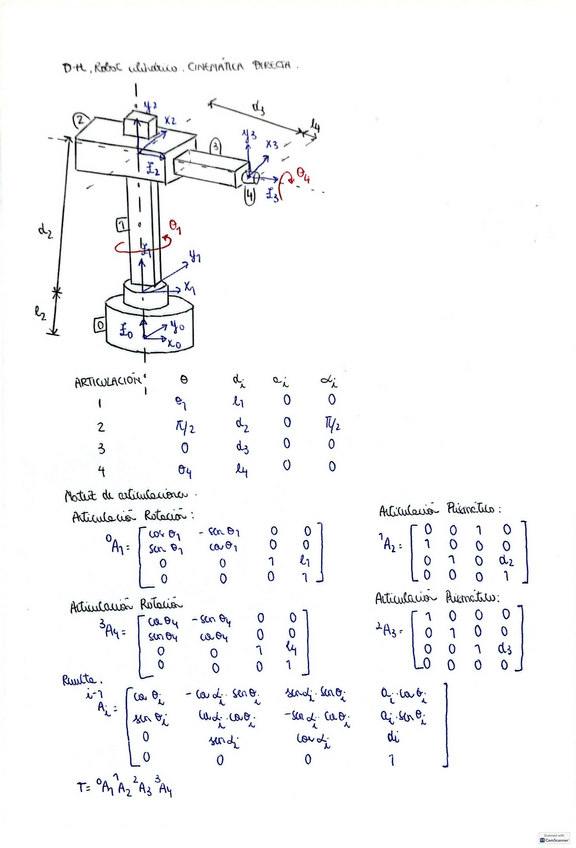 D-H, Robot cilíndrico. CINEMÁTICA DIRECTA.
2
y2
x2
z2
d3
l4
3
y3
x3
z3
θ4
4
d2
1
θ1
z1
y1
x1
l2
0
z0
y0
x0
ARTICULACIÓN θ di ai αi
1 θ1 l1 0 0
2 π/2 d2 0 π/2
3 0 d3 0 0
4 θ4 l4 0 0
Matriz de articulaciones.
Articulación Rotación:
0A1 = [ cos θ1 -sen θ1 0 0
sen θ1 cos θ1 0 0
0 0 1 l1
0 0 0 1 ]
Articulación Prismático:
1A2 = [ 0 0 1 0
1 0 0 0
0 1 0 d2
0 0 0 1 ]
Articulación Rotación
3A4 = [ cos θ4 -sen θ4 0 0
sen θ4 cos θ4 0 0
0 0 1 l4
0 0 0 1 ]
Articulación Prismático:
2A3 = [ 1 0 0 0
0 1 0 0
0 0 1 d3
0 0 0 0 ]
i-1Ai = [ cos θi -cos αi. sen θi sen αi. sen θi ai. cos θi
sen θi cos αi. cos θi -sen αi. cos θi ai. sen θi
0 sen αi cos αi di
0 0 0 1 ]
T = 0A1 1A2 2A3 3A4
Scanned with
CamScanner